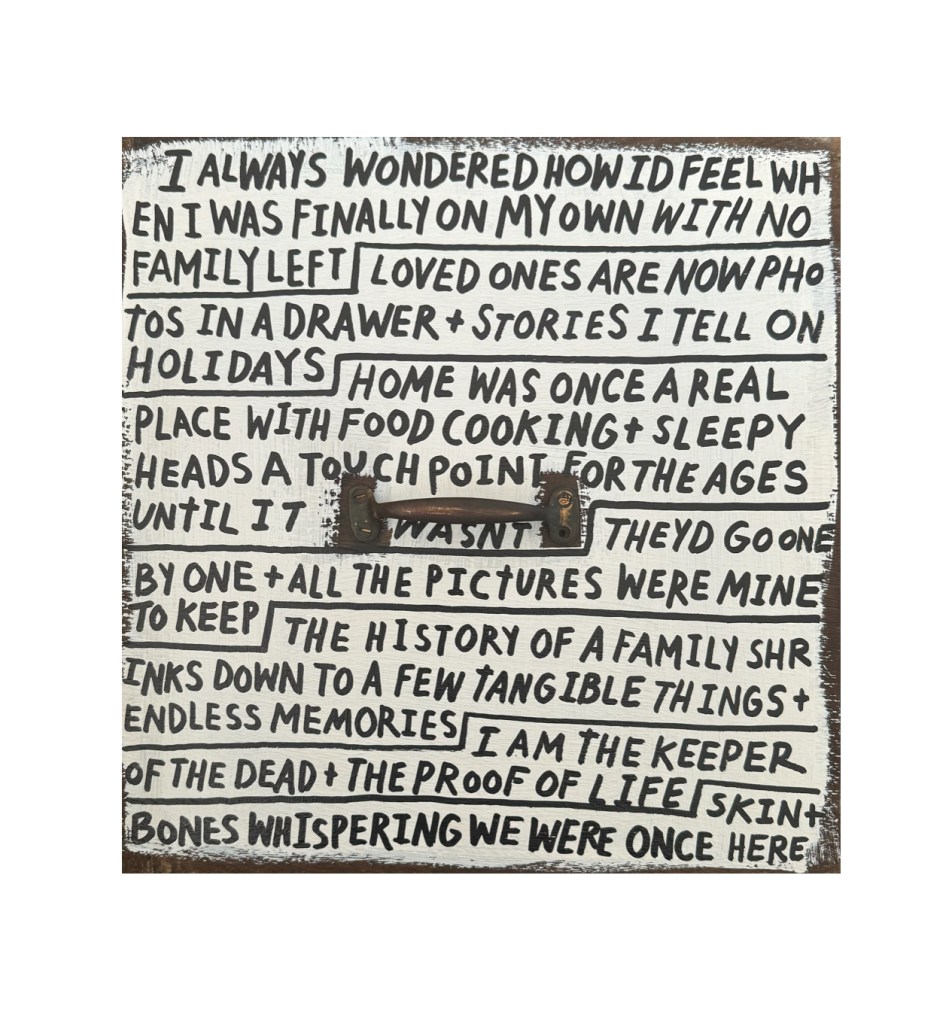 I ALWAYS WONDERED HOW ID FEEL WH
EN I WAS FINALLY ON MY OWN WITH NO
FAMILY LEFT LOVED ONES ARE NOW PHO
TOS IN A DRAWER + STORIES I TELL ON
HOLIDAYS HOME WAS ONCE A REAL
PLACE WITH FOOD COOKING + SLEEPY
HEADS A TOUCH POINT FOR THE AGES
UNTIL IT WASNT THEYD GO ONE
BY ONE + ALL THE PICTURES WERE MINE
TO KEEP THE HISTORY OF A FAMILY SHR
INKS DOWN TO A FEW TANGIBLE THINGS +
ENDLESS MEMORIES I AM THE KEEPER
OF THE DEAD + THE PROOF OF LIFE SKIN +
BONES WHISPERING WE WERE ONCE HERE